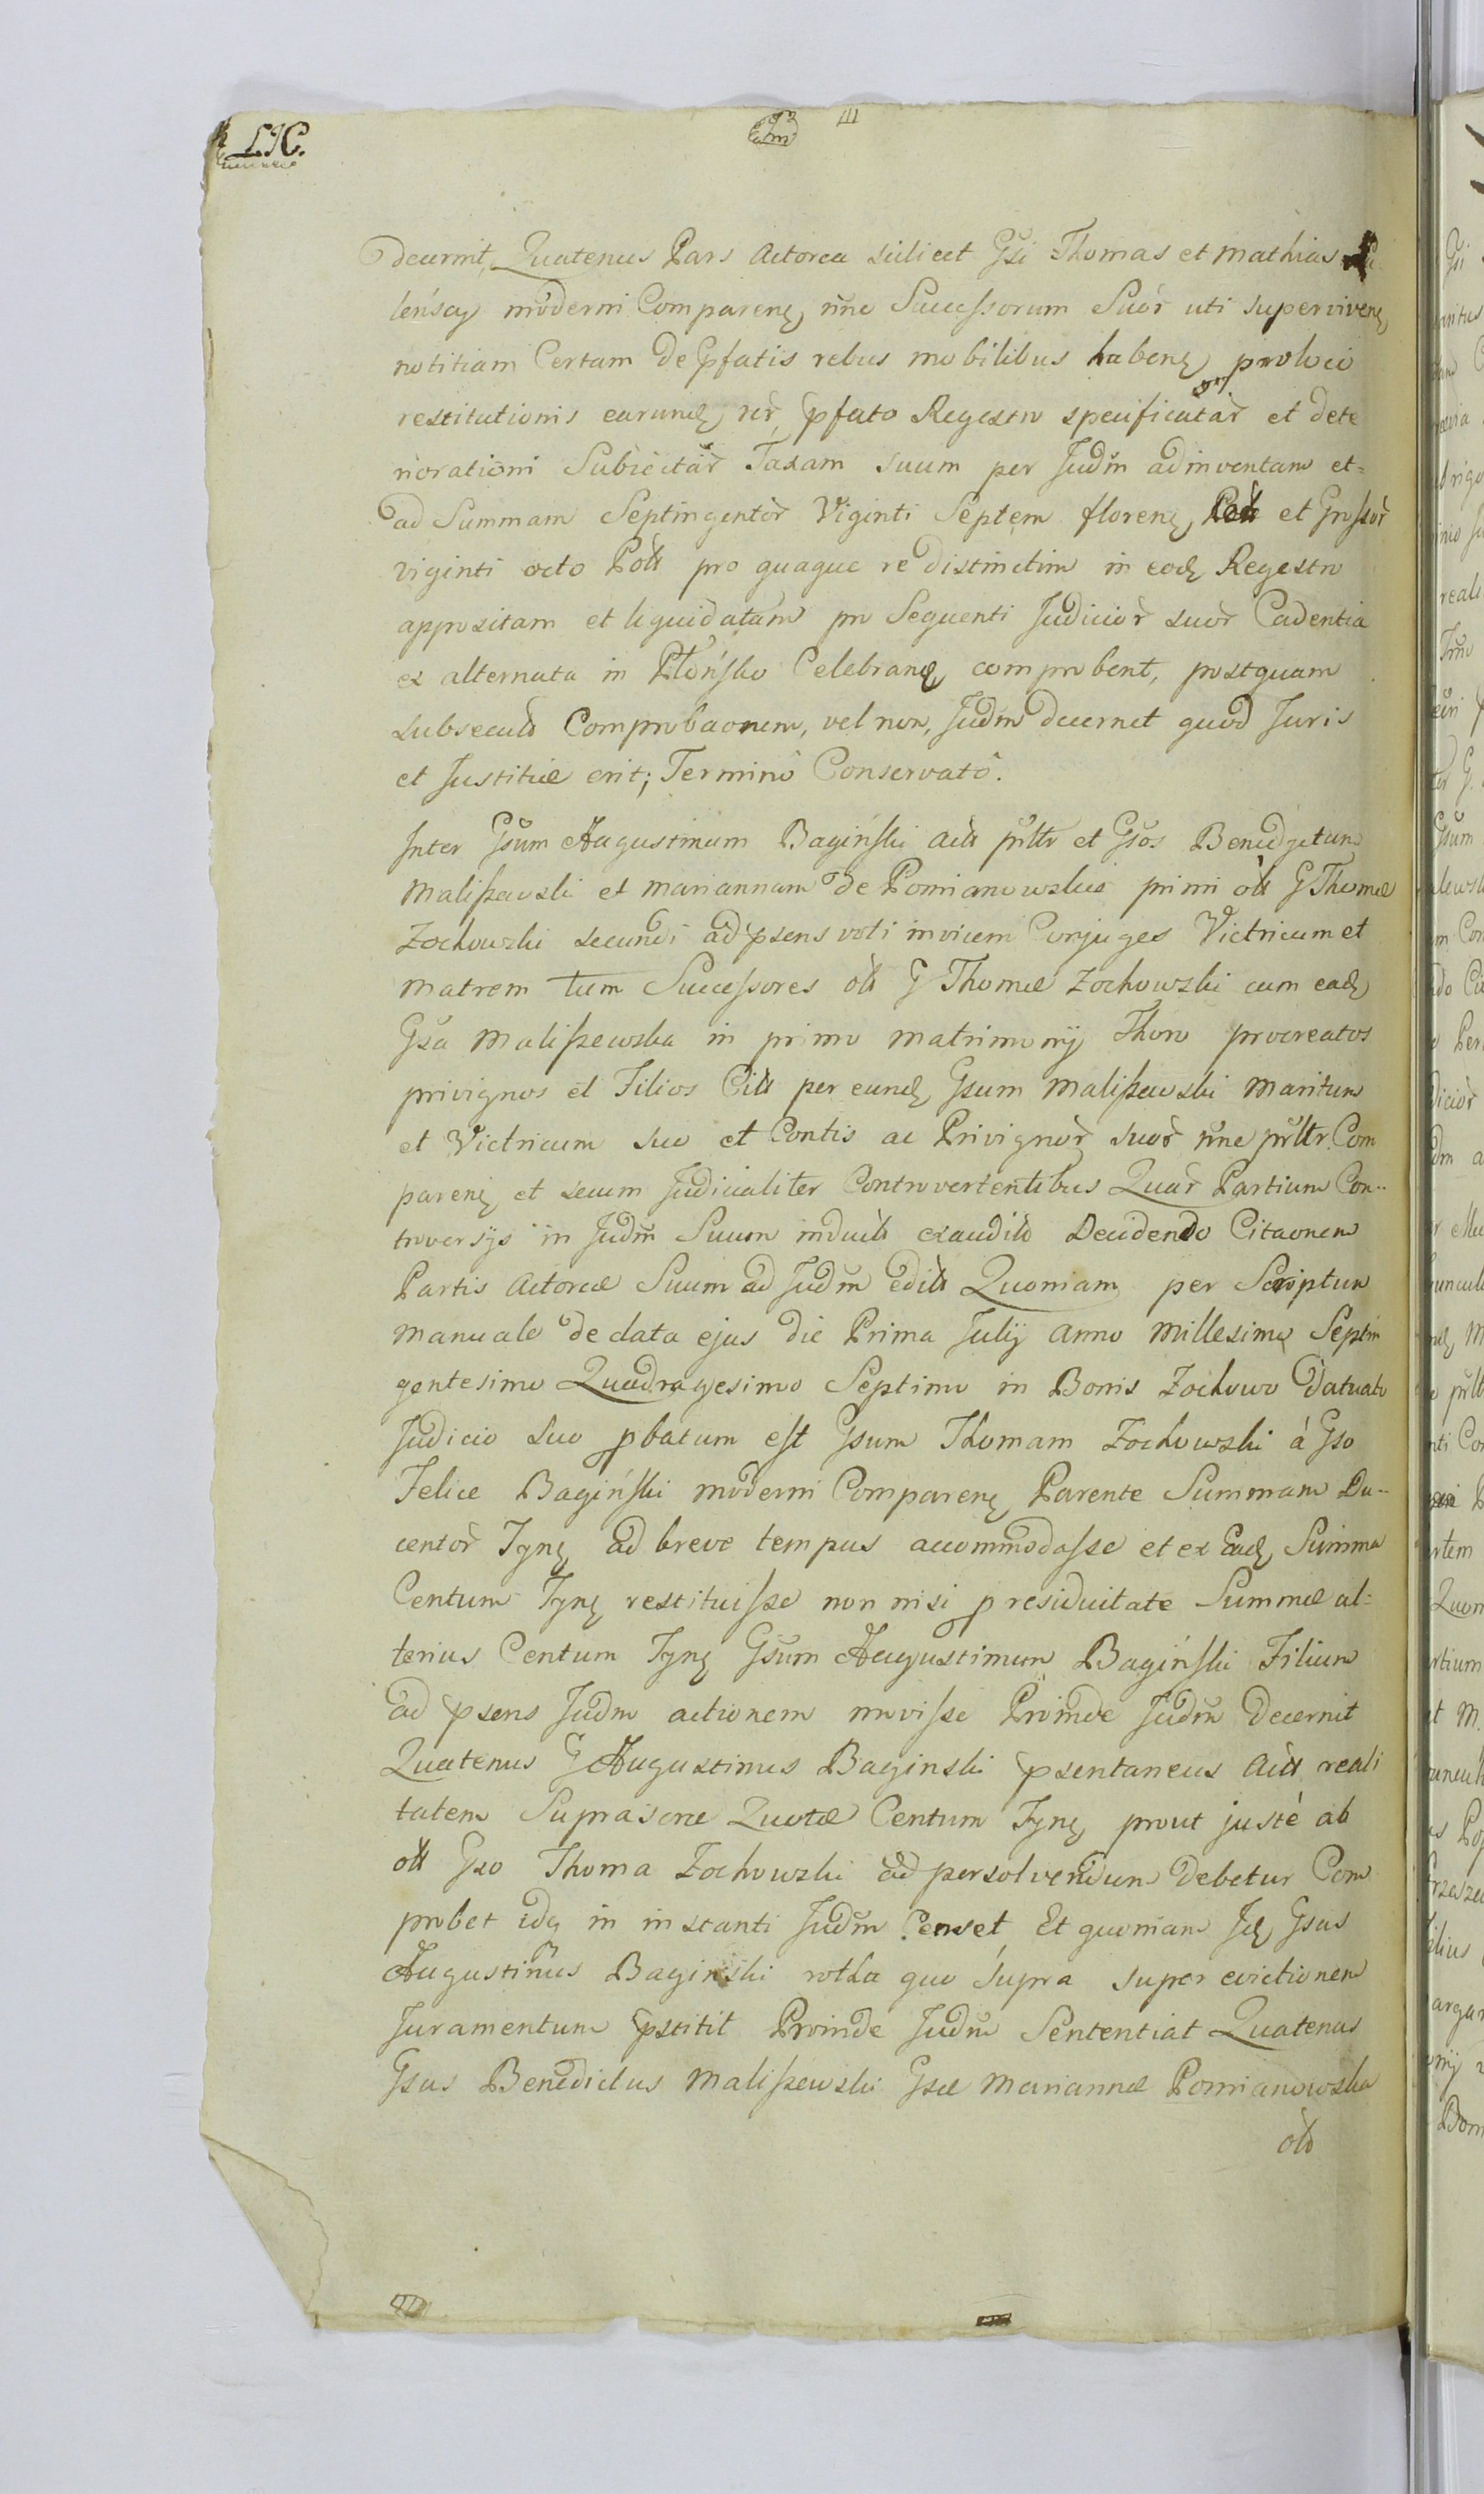 LIC.
decernit, Quatenus Pars Actorea scilicet Gsi Thomas et Mathias
lenscy moderni Comparenę, nne Successorum Suor uti superviven̨
notitiam Certam de Pfatis rebus mobilibus habenę, pro loco
restitutionis earundę, rer, pfato Regestro specificatar et dete
riorationi Subiectar Taxam suum per Judm adinventam et=
ad Summam Septingentor Viginti Septem florenę, Poll et Grossor
viginti octo Poll pro quaque re distinctim in eodę Regestro
appositam et liquidatam pro Sequenti Judicior suor Cadentia
ex alternata in Płońsko Celebranę, comprobent, postquam
subsecuta Comprobaonem, vel non, Judm decernet quod Juris
et Justitiæ erit; Terminô Conservatô.
Inter Gsum Augustinum Bagiński Actt pnltr et Gsos Benedyctum
Maliszewski et Mariannam de Pomianowskie primi ott G Thomæ
Zochowski secundi ad psens voti invicem Conjuges Victricum et
Matrem tum Successores ott G Thomæ Zochowski cum eadę
Gsa Maliszewska in primo matrimonij Thoro procreatos
privignos et Filios Citt per eundę, Gsum Maliszewski Maritum
et Victricum suo et Contis ac Privignor suor nne pnltr Com
parenę et secum Judicialiter Controvertentibus Quar Partium Con..
troversijs in Judm Suum inductt exaudito Decidendo Citaonem
Partis Actoreæ Suum ad Judm editt Quoniam per Scriptum
Manuale de data ejus die Prima Julij Anno Millesimo Septin
gentesimo Quadragesimo Septimo in Bonis Zochowo datuato
Judicio suo pbatum est Gsum Thomam Zochowski á Gso
Felice Bagiński moderni Comparenę, Parente Summam Du..
centor Tynę, ad breve tempus accommodasse et ex Eadę, Summa
Centum Tynę, restituisse non nisi p residuitate Summæ al=
terius Centum Tynę Gsum Augustinum Bagiński Filium
ad psens Judm actionem movisse Proinde Judm Decernit
Quatenus G Augustinus Baginski psentaneus Actt reali
tatem Suprascræ Quotæ Centum Tynę, prout justè ab
ott Gso Thoma Zochowski ad persolvendum debetur Com
probet idq in instanti Judm Censet Et quoniam Idę, Gsus
Augustinus Baginski rotha quo supra super evictionem
Juramentum pstitit Proinde Judm Sententiat Quatenus
Gsus Benedictus Maliszewski Gsæ Mariannæ Pomianowska
ott